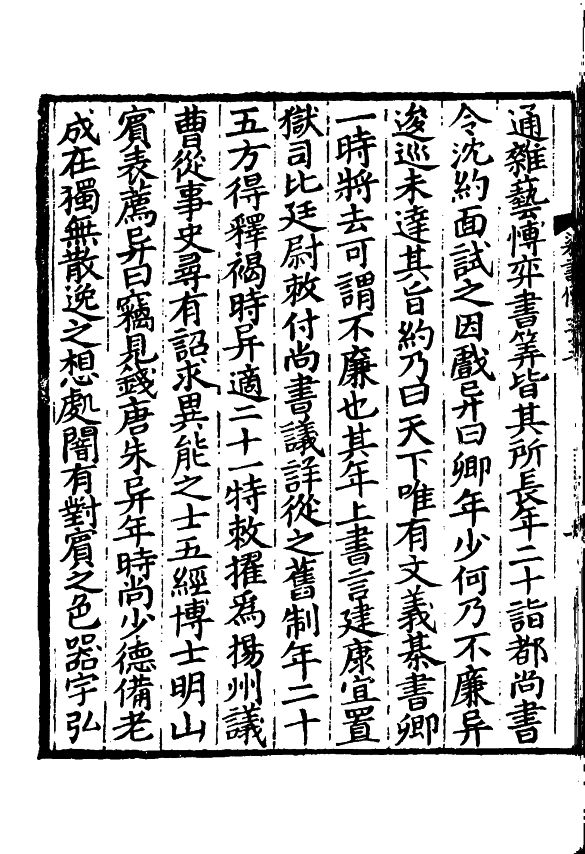 通雜藝愽弈書筭皆其所長年二十詣都尚書
令沈約面試之因戲异曰卿年少何乃不廉异
逡巡未達其旨約乃曰天下唯有文義棊書卿
一時將去可謂不廉也其年上書言建康宜置
獄司比廷尉敕付尚書議詳從之舊制年二十
五方得釋褐時异適二十一特敕擢爲揚州議
曹從事史尋有詔求異能之士五經博士明山
賓表薦异曰竊見錢唐朱异年時尚少德備老
成在獨無散逸之想處闇有對賓之色器宇弘